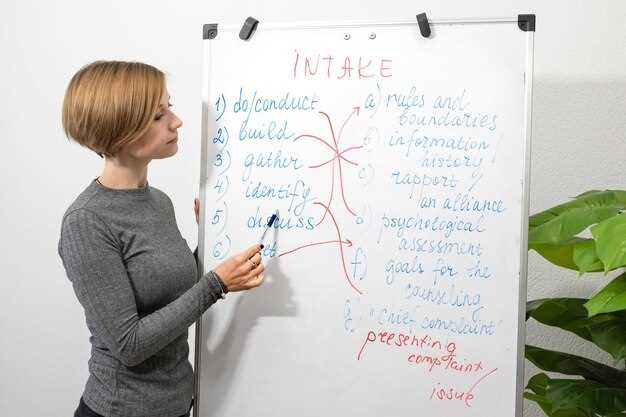 INTAKE
1) do/conduct
2) build
3) gather
4) identify
5) discuss
6) set
a) rules and
boundaries
b) information /
history
c) rapport /
an alliance
d) psychological
assessment
f) goals for the
counseling
g) "chief complaint"
presenting
complaint
issue